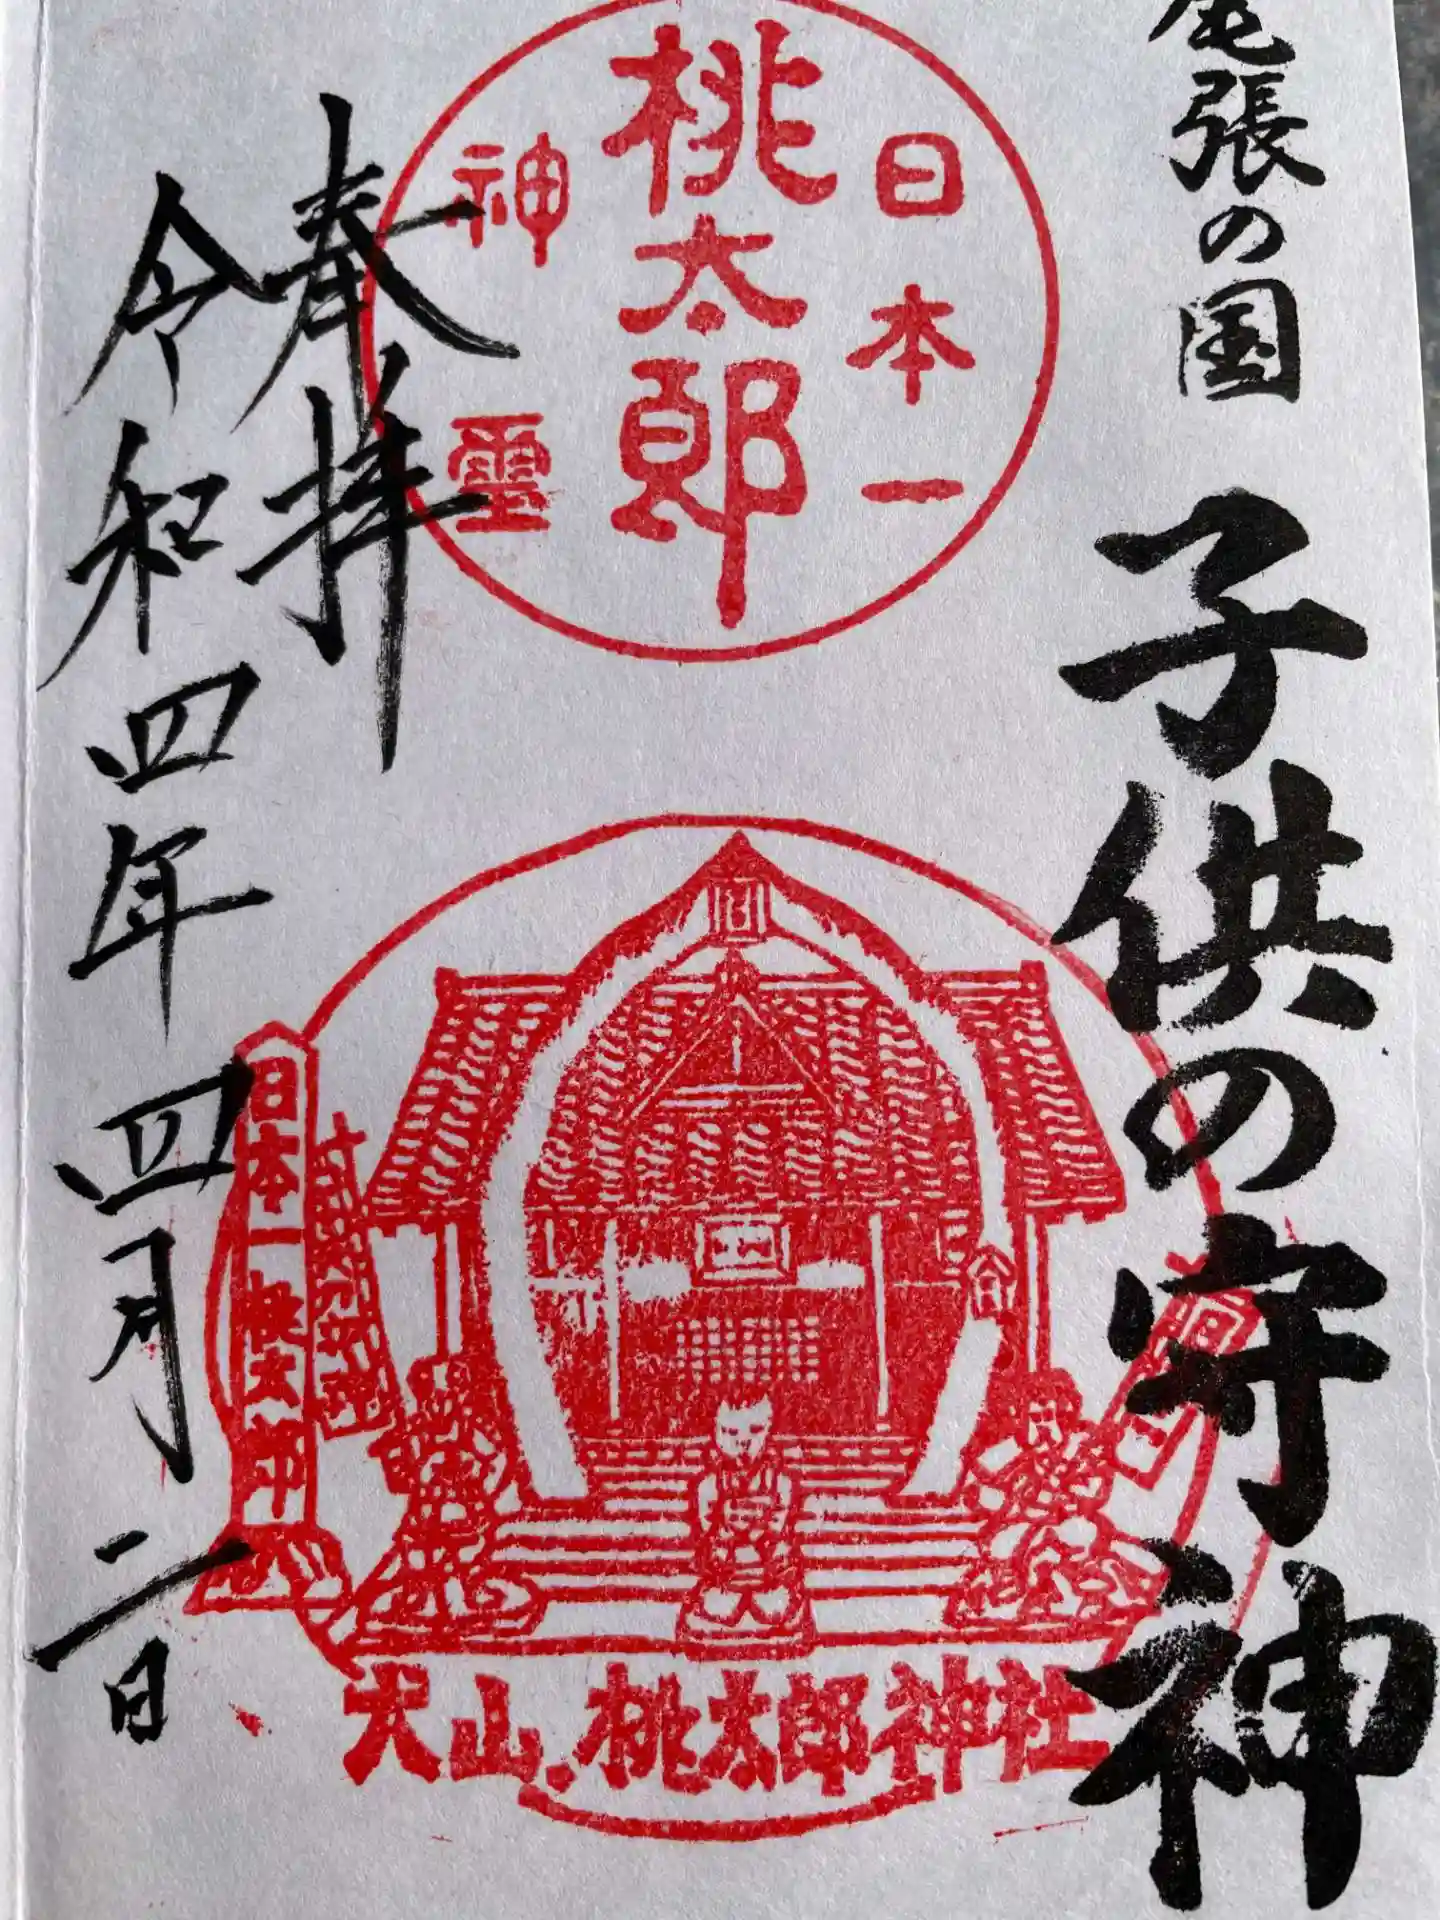 尾張の国 子供の守神
日本一
桃太郎
神霊
奉拝
令和四年四月二日
日本一桃太郎
犬山.桃太郎神社